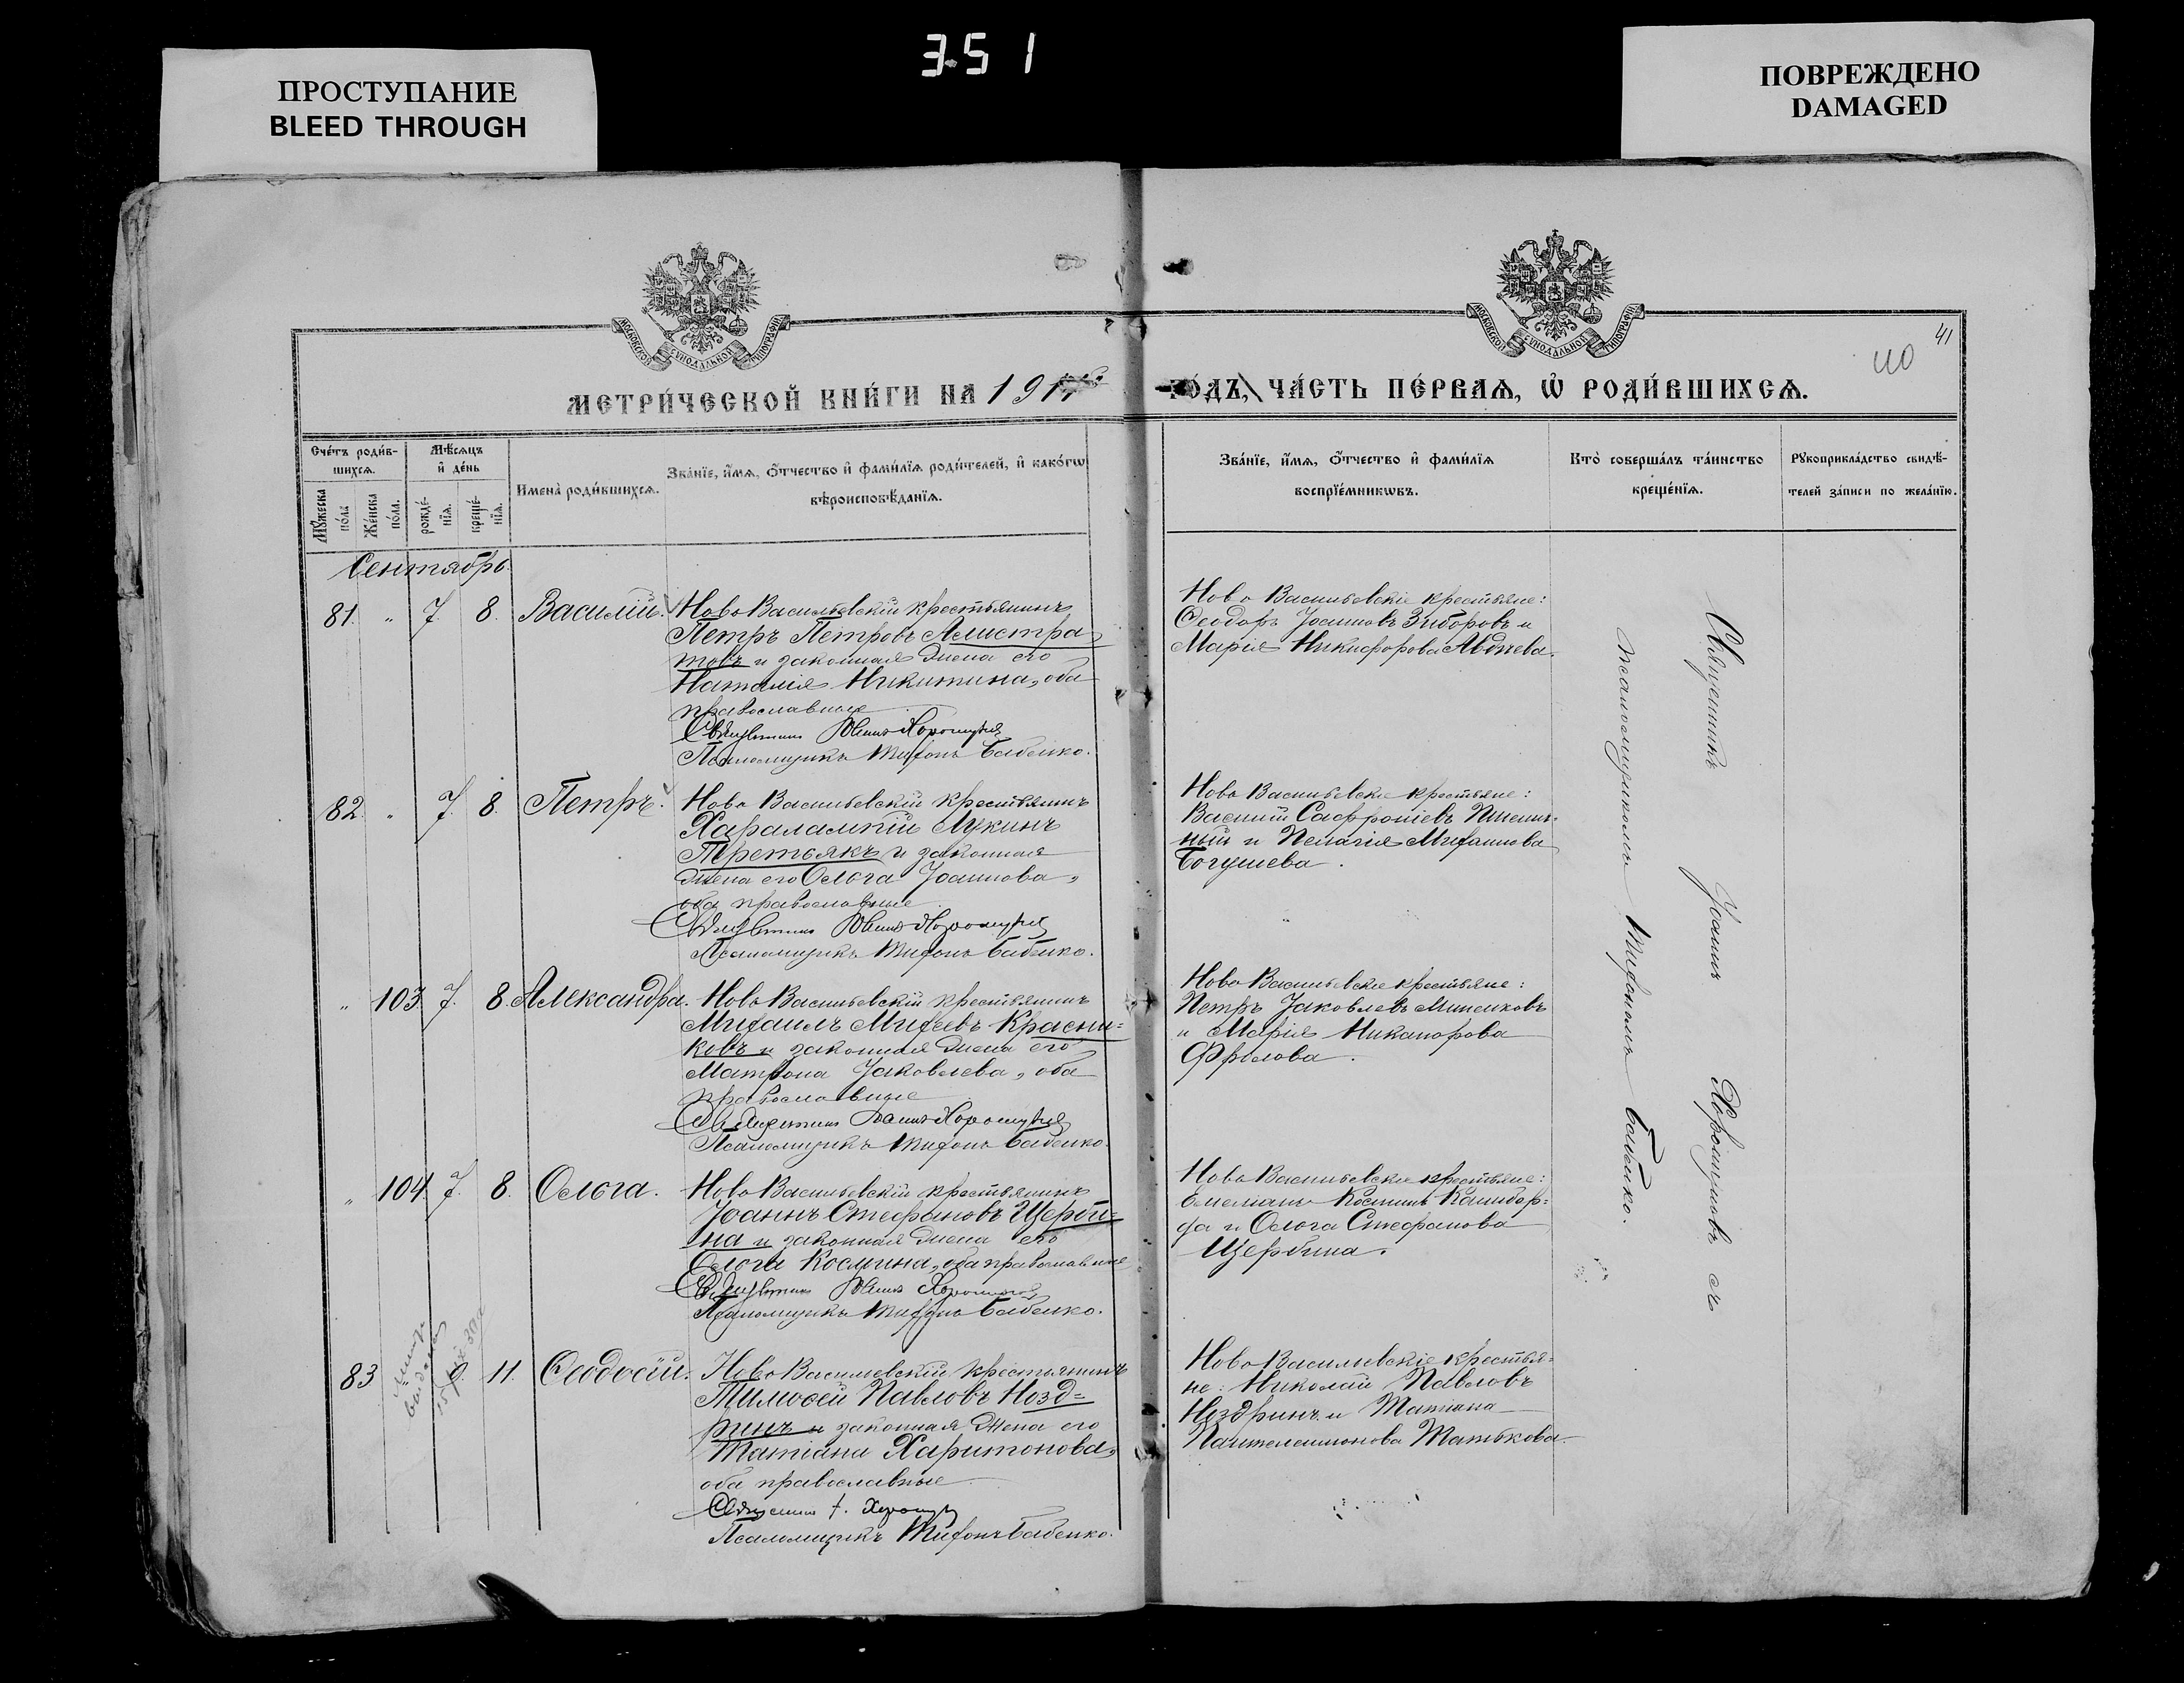 351
ПРОСТУПАНИЕ
BLEED THROUGH
ПОВРЕЖДЕНО
DAMAGED
МОСКОВСКОЙ СѴНОДАЛЬНОЙ ТИПОГРАФІИ
МОСКОВСКОЙ СѴНОДАЛЬНОЙ ТИПОГРАФІИ
41
40
МЕТРИ́ЧЕСКОЙ КНИ́ГИ НА 191
ГО́ДЪ, ЧА́СТЬ ПЕ́РВАѦ, Ѽ РОДИ́ВШИХСѦ.
Сче́тъ роди́в-
шихсѧ.
Мѣ́сѧцъ
и҆ де́нь
Мꙋ́жеска
по́ла
Же́нска
по́ла.
рожде́-
нїѧ.
креще́-
нїѧ.
Имена̀ роди́вшихсѧ.
Зва́нїе, и҆́мѧ, ѻ҆́тчество и҆ фами́лїѧ роди́телей, и҆ како́гѡ
вѣроисповѣ́данїѧ.
Зва́нїе, и҆́мѧ, ѻ҆́тчество и҆ фами́лїѧ
воспрїе́мникѡвъ.
Кто̀ соверша́лъ та́инство
креще́нїѧ.
Рꙋкоприкла́дство свидѣ́-
телей за́писи по жела́нїю.
Сентябрь.
81. " 7. 8. Василій.
Ново Васильевскій крестьянинъ
Петръ Петровъ Алистра
товъ и законная жена его
Наталія Никитина, оба
православные
Священникъ Іоаннъ Хорошунъ
Псаломщикъ Тихонъ Бабенко.
Ново Васильевскіе крестьяне:
Ѳеодоръ Іоанновъ Зиборовъ и
Марія Никифорова Авдѣева.
82. " 7. 8. Петръ.
Ново Васильевскій крестьянинъ
Харалампій Лукинъ
Третьякъ и законная
жена его Ольга Іоаннова,
оба православные
Священникъ Іоаннъ
Псаломщикъ Тихонъ Бабенко.
Ново Васильевскіе крестьяне:
Василій Сафроніевъ Пшенич-
ный и Пелагія Михаилова
Богушева.
" 103. 7. 8. Александра.
Ново Васильевскій крестьянинъ
Михаилъ Михеевъ Красни=
ковъ и законная жена его
Матрона Іаковлева, оба
православные
Священникъ Іоаннъ
Псаломщикъ Тихонъ Бабенко.
Ново Васильевскіе крестьяне:
Петръ Іаковлевъ Миненковъ
и Марія Никанорова
Фролова.
" 104. 7. 8. Ольга.
Ново Васильевскій крестьянинъ
Іоаннъ Стефановъ Щерби=
на и законная жена его
Ольга Космина, оба православные
Священникъ Іоаннъ
Псаломщикъ Тихонъ Бабенко.
Ново Васильевскіе крестьяне:
Емельянъ Косминъ
да и Ольга Стефанова
Щербина.
83 11. Ѳеодосій.
Ново Васильевскій крестьянинъ
Тимоѳей Павловъ Нозд=
ринъ и законная жена его
Татіана Харитонова,
оба православные
Священникъ І.
Псаломщикъ Тихонъ Бабенко.
Ново Васильевскіе крестья=
не: Николай Павловъ
Ноздринъ и Татіана
Пантелеимонова Титькова.
Священникъ Іоаннъ съ
псаломщикомъ Тихономъ Бабенко.